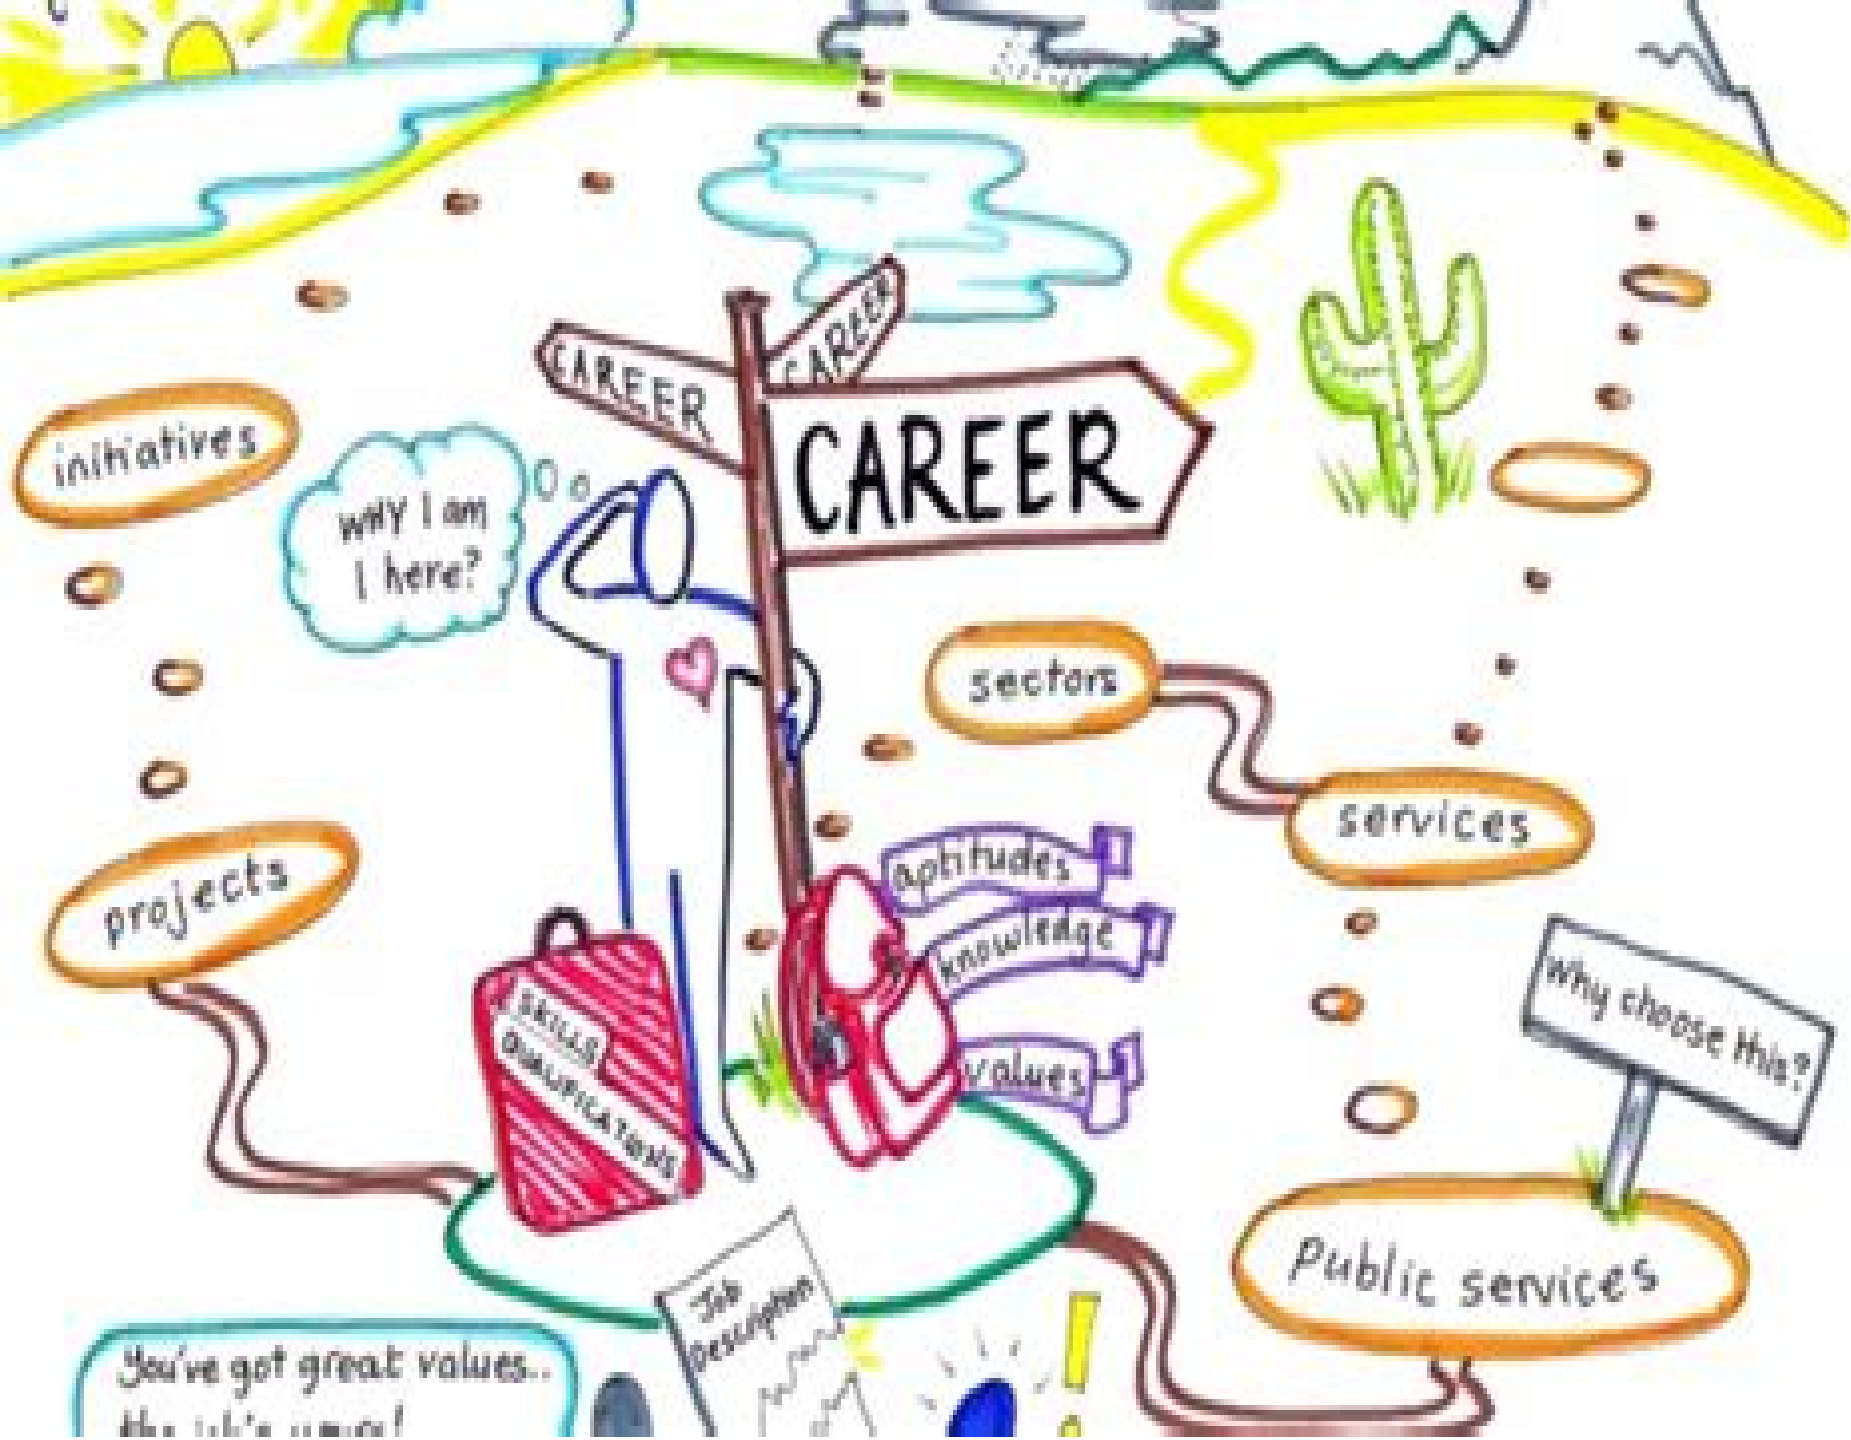 CAREER
CAREER
CAREER
initiatives
WHY I am
I here?
sectors
services
projects
aptitudes
knowledge
values
SKILLS
QUALIFICATIONS
Why choose this?
Public services
Job
Description
You've got great values..
the job's yours!